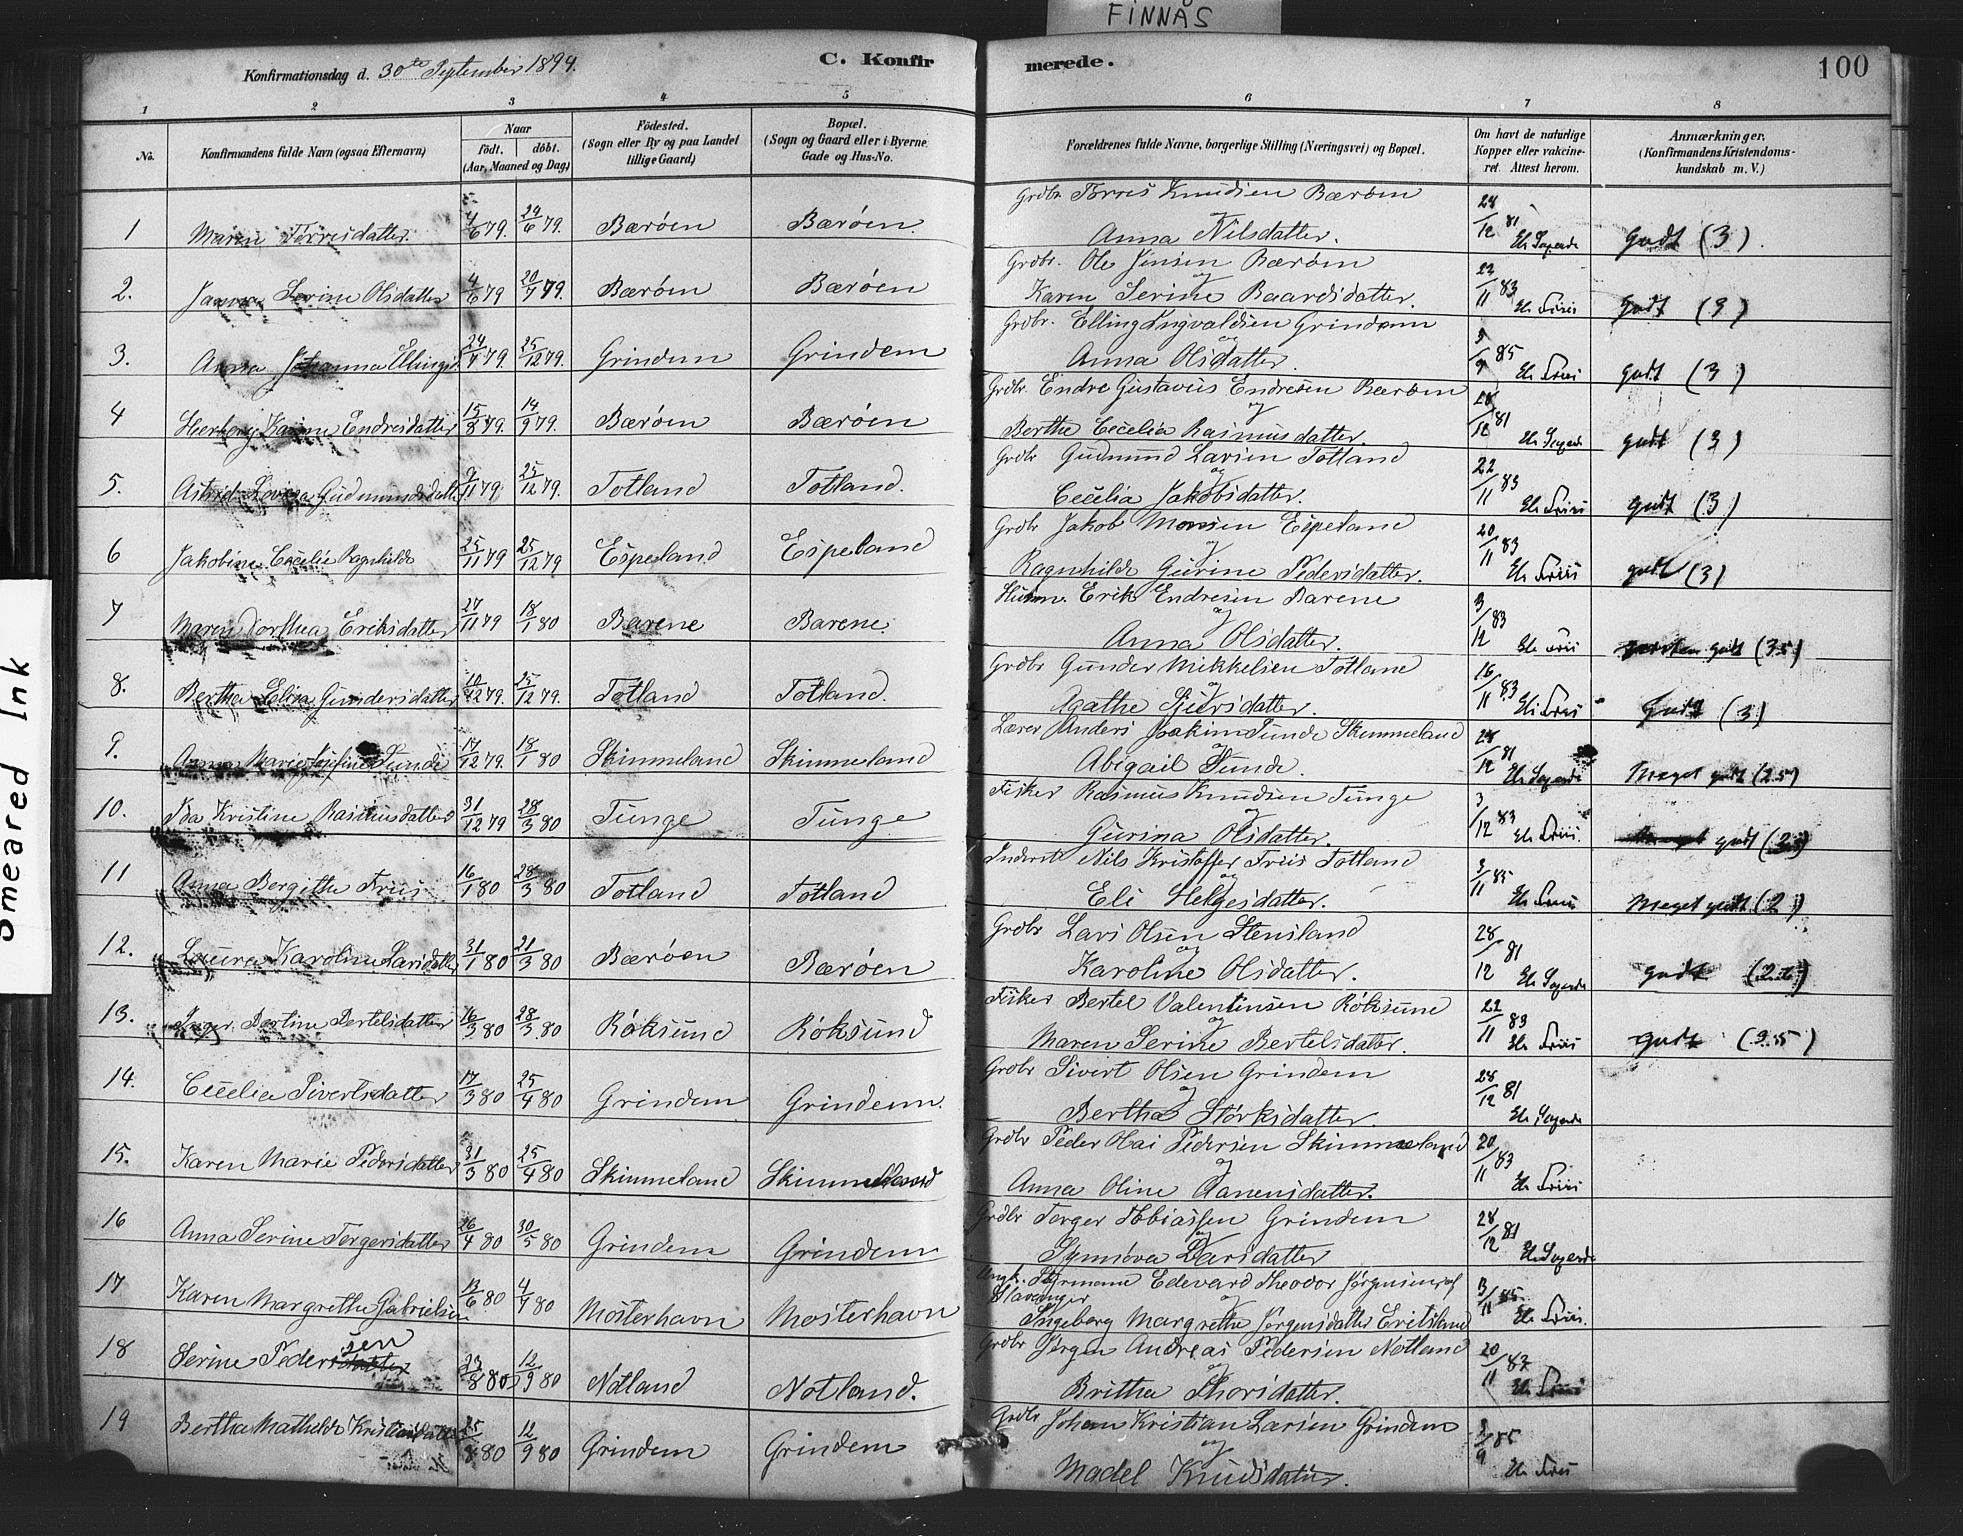 FINNÅS
Konfirmationsdag d. 30te September 1894.
C. Konfirmerede.
100
1 2 3 4 5 6 7 8
No.
Konfirmandens fulde Navn (ogsaa Efternavn)
Naar
födt. döbt.
(Aar, Maaned og Dag)
Födested.
(Sogn eller By og paa Landet
tillige Gaard)
Bopæl.
(Sogn og Gaard eller i Byerne
Gade og Hus-No.
Forældrenes fulde Navne, borgerlige Stilling (Næringsvei) og Bopæl.
Om havt de naturlige
Kopper eller vakcine-
ret. Attest herom.
Anmærkninger.
(Konfirmandens Kristendoms-
kundskab m. V.)
Grdbr. Torres Knudsen Bærøen
1 Maren Torresdatter 4/6 79. 29/6 79. Bærøen Bærøen. og Anna Nilsdatter. 28/12 81 Godt (3).
Grdbr. Ole Jensen Bærøen
2. Janna Serine Olsdatter 4/6 79 20/7 79. Bærøen Bærøen og Karen Serine Baardsdatter. 22/11 83 Els Friis godt (3)
Grdbr. Elling Ingvaldsen Grindem
3. Anna Johanna Ellings 29/7 79 25/12 79. Grindem Grindem og Anna Olsdatter. 3/9 85 Els Friis godt (3)
Grdbr. Endre Gustavus Endresen Bærøen
4 Herborg Karine Endresdatter 15/8 79. 14/9 79. Bærøen Bærøen og Berthe Cecelia Rasmusdatter. 28/12 81 godt (3)
Grdbr Gudmund Larsen Totland
5. Astrid Lovisa Gudmundsdatt 9/11 79 25/12 79. Totland Totland. og Cecelia Jakobsdatter. 22/11 83 Els Friis godt (3)
Grdbr Jakob Monsen Espeland
6 Jakobine Cecilie Ragnhilde 25/11 79 25/12 79 Espeland Espeland og Ragnhilde Gurine Pedersdatter. 20/11 83 Els Friis godt (3)
Husm. Erik Endresen Barene
7 Maren Dorthea Eriksdatter 27/11 79 18/1 80 Barene Barene. og Anna Olsdatter. 3/12 83 Els Friis godt (3.5)
Grdbr Gunder Mikkelsen Totland
8. Bertha Elisa Gundersdatter 10/12 79. 25/12 79. Totland Totland. og Agathe Sjursdatter. 16/11 83 Els Friis Godt (3)
Lærer Anders Joakim Tunde Skimmeland
9. Anna Marie Josefine Tunde 17/12 79. 18/1 80 Skimmeland Skimmeland og Abigail Tunde. 28/12 81 Meget godt (2.5)
Fisker Rasmus Knudsen Tunge
10. Ida Kristine Rasmusdatter 31/12 79 28/3 80 Tunge Tunge og Gurina Olsdatter. 3/12 83 Els Friis. godt
Inderst Nils Kristoffer Friis Totland
11 Anna Bergitte Friis 16/1 80 28/3 80 Totland Totland og Eli Helgesdatter. 3/11 85 Els Friis Meget godt (2)
Grdbr Lars Olsen Stensland
12. Laura Karoline Larsdatter 31/1 80 21/3 80 Bærøen Bærøen og Karoline Olsdatter. 28/12 81 godt
Fisker Bertel Valentinsen Røksund
13. Inger Bertine Bertelsdatter 16/3 80 28/3 80 Røksund Røksund og Maren Serine Bertelsdatter. 22/11 83 Els Friis godt
Grdbr Sivert Olsen Grindem
14. Cecelia Sivertsdatter 17/3 80 25/4 80 Grindem Grindem. og Bertha Størksdatter. 28/12 81
Grdbr Peder Olai Pedersen Skimmeland
15. Karen Marie Pedersdatter 31/3 80 25/4 80 Skimmeland Skimmeland og Anna Oline Aanensdatter. 20/11 83 Els Friis
Grdbr Torger Tobiassen Grindem
16 Anna Serine Torgersdatter 26/4 80 30/5 80 Grindem Grindem og Synnøva Larsdatter 28/12 81
Styrmann Edevard Theodor Jørgensen af Stavanger
17 Karen Margrethe Gabrielsen 13/6 80 4/7 80 Mosterhavn Mosterhavn og Ingeborg Margrethe Jørgensdatter 3/11 85. Els Friis.
Grdbr Jørgen Andreas Pedersen Notland
18 Serine Pedersen 23/8 80 12/9 80 Notland Notland. og Britha Thorsdatter. 20/11 83 Els Friis
Grdbr Johan Kristian Larsen Grindem
19 Bertha Mathilde 25/8 80 12/9 80 Grindem Grindem og Madel Knudsdatter. 3/9 85 Els Friis
Smeared Ink